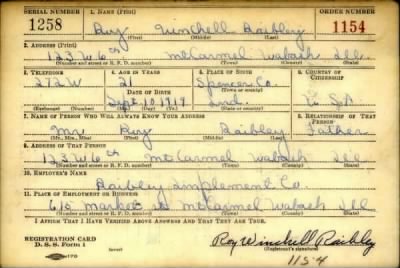 SERIAL NUMBER 1. NAME (Print) ORDER NUMBER
1258 Roy Winchell Raibley 1154
(First) (Middle) (Last)
2. ADDRESS (Print)
123 W 6th Mt Carmel Wabash Ill
(Number and street or R. F. D. number) (Town) (County) (State)
3. TELEPHONE 4. AGE IN YEARS 5. PLACE OF BIRTH 6. COUNTRY OF CITIZENSHIP
272W 21 Spencer Co.
DATE OF BIRTH (Town or county)
Sept 10 1919 Ind. U. S. A
(Exchange) (Number) (Mo.) (Day) (Yr.) (State or country)
7. NAME OF PERSON WHO WILL ALWAYS KNOW YOUR ADDRESS 8. RELATIONSHIP OF THAT PERSON
Mr. Roy Raibley Father
(Mr., Mrs., Miss) (First) (Middle) (Last)
9. ADDRESS OF THAT PERSON
123 W 6th Mt Carmel Wabash Ill
(Number and street or R. F. D. number) (Town) (County) (State)
10. EMPLOYER'S NAME
Raibley Implement Co.
11. PLACE OF EMPLOYMENT OR BUSINESS
615 Market St Mt Carmel Wabash Ill
(Number and street or R. F. D. number) (Town) (County) (State)
I AFFIRM THAT I HAVE VERIFIED ABOVE ANSWERS AND THAT THEY ARE TRUE.
REGISTRATION CARD
D. S. S. Form 1 Roy Winchell Raibley
(Registrant's signature)
1154